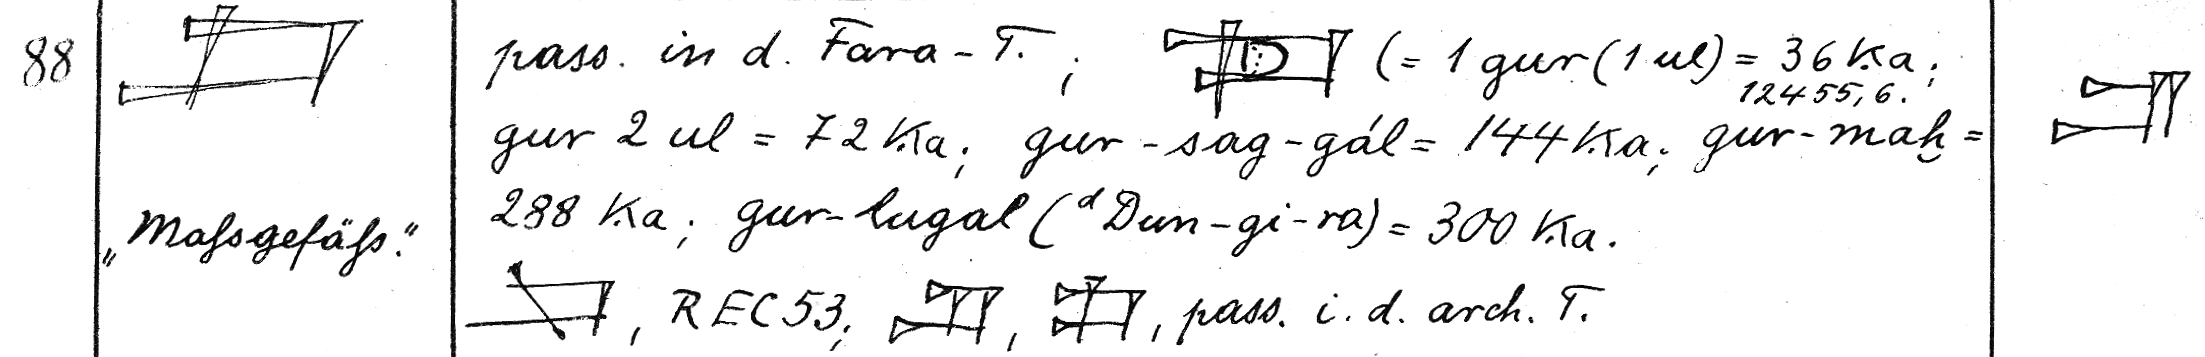 88
pass. in d. Fara-T.; (= 1 gur (1 ul) = 36 Ka;
12455, 6.
gur 2 ul = 72 Ka; gur-sag-gál = 144 Ka; gur-maḫ =
288 Ka; gur-lugal (ᵈDun-gi-ra) = 300 Ka.
„Maſsgefäſs."
, REC 53; , , pass. i. d. arch. T.